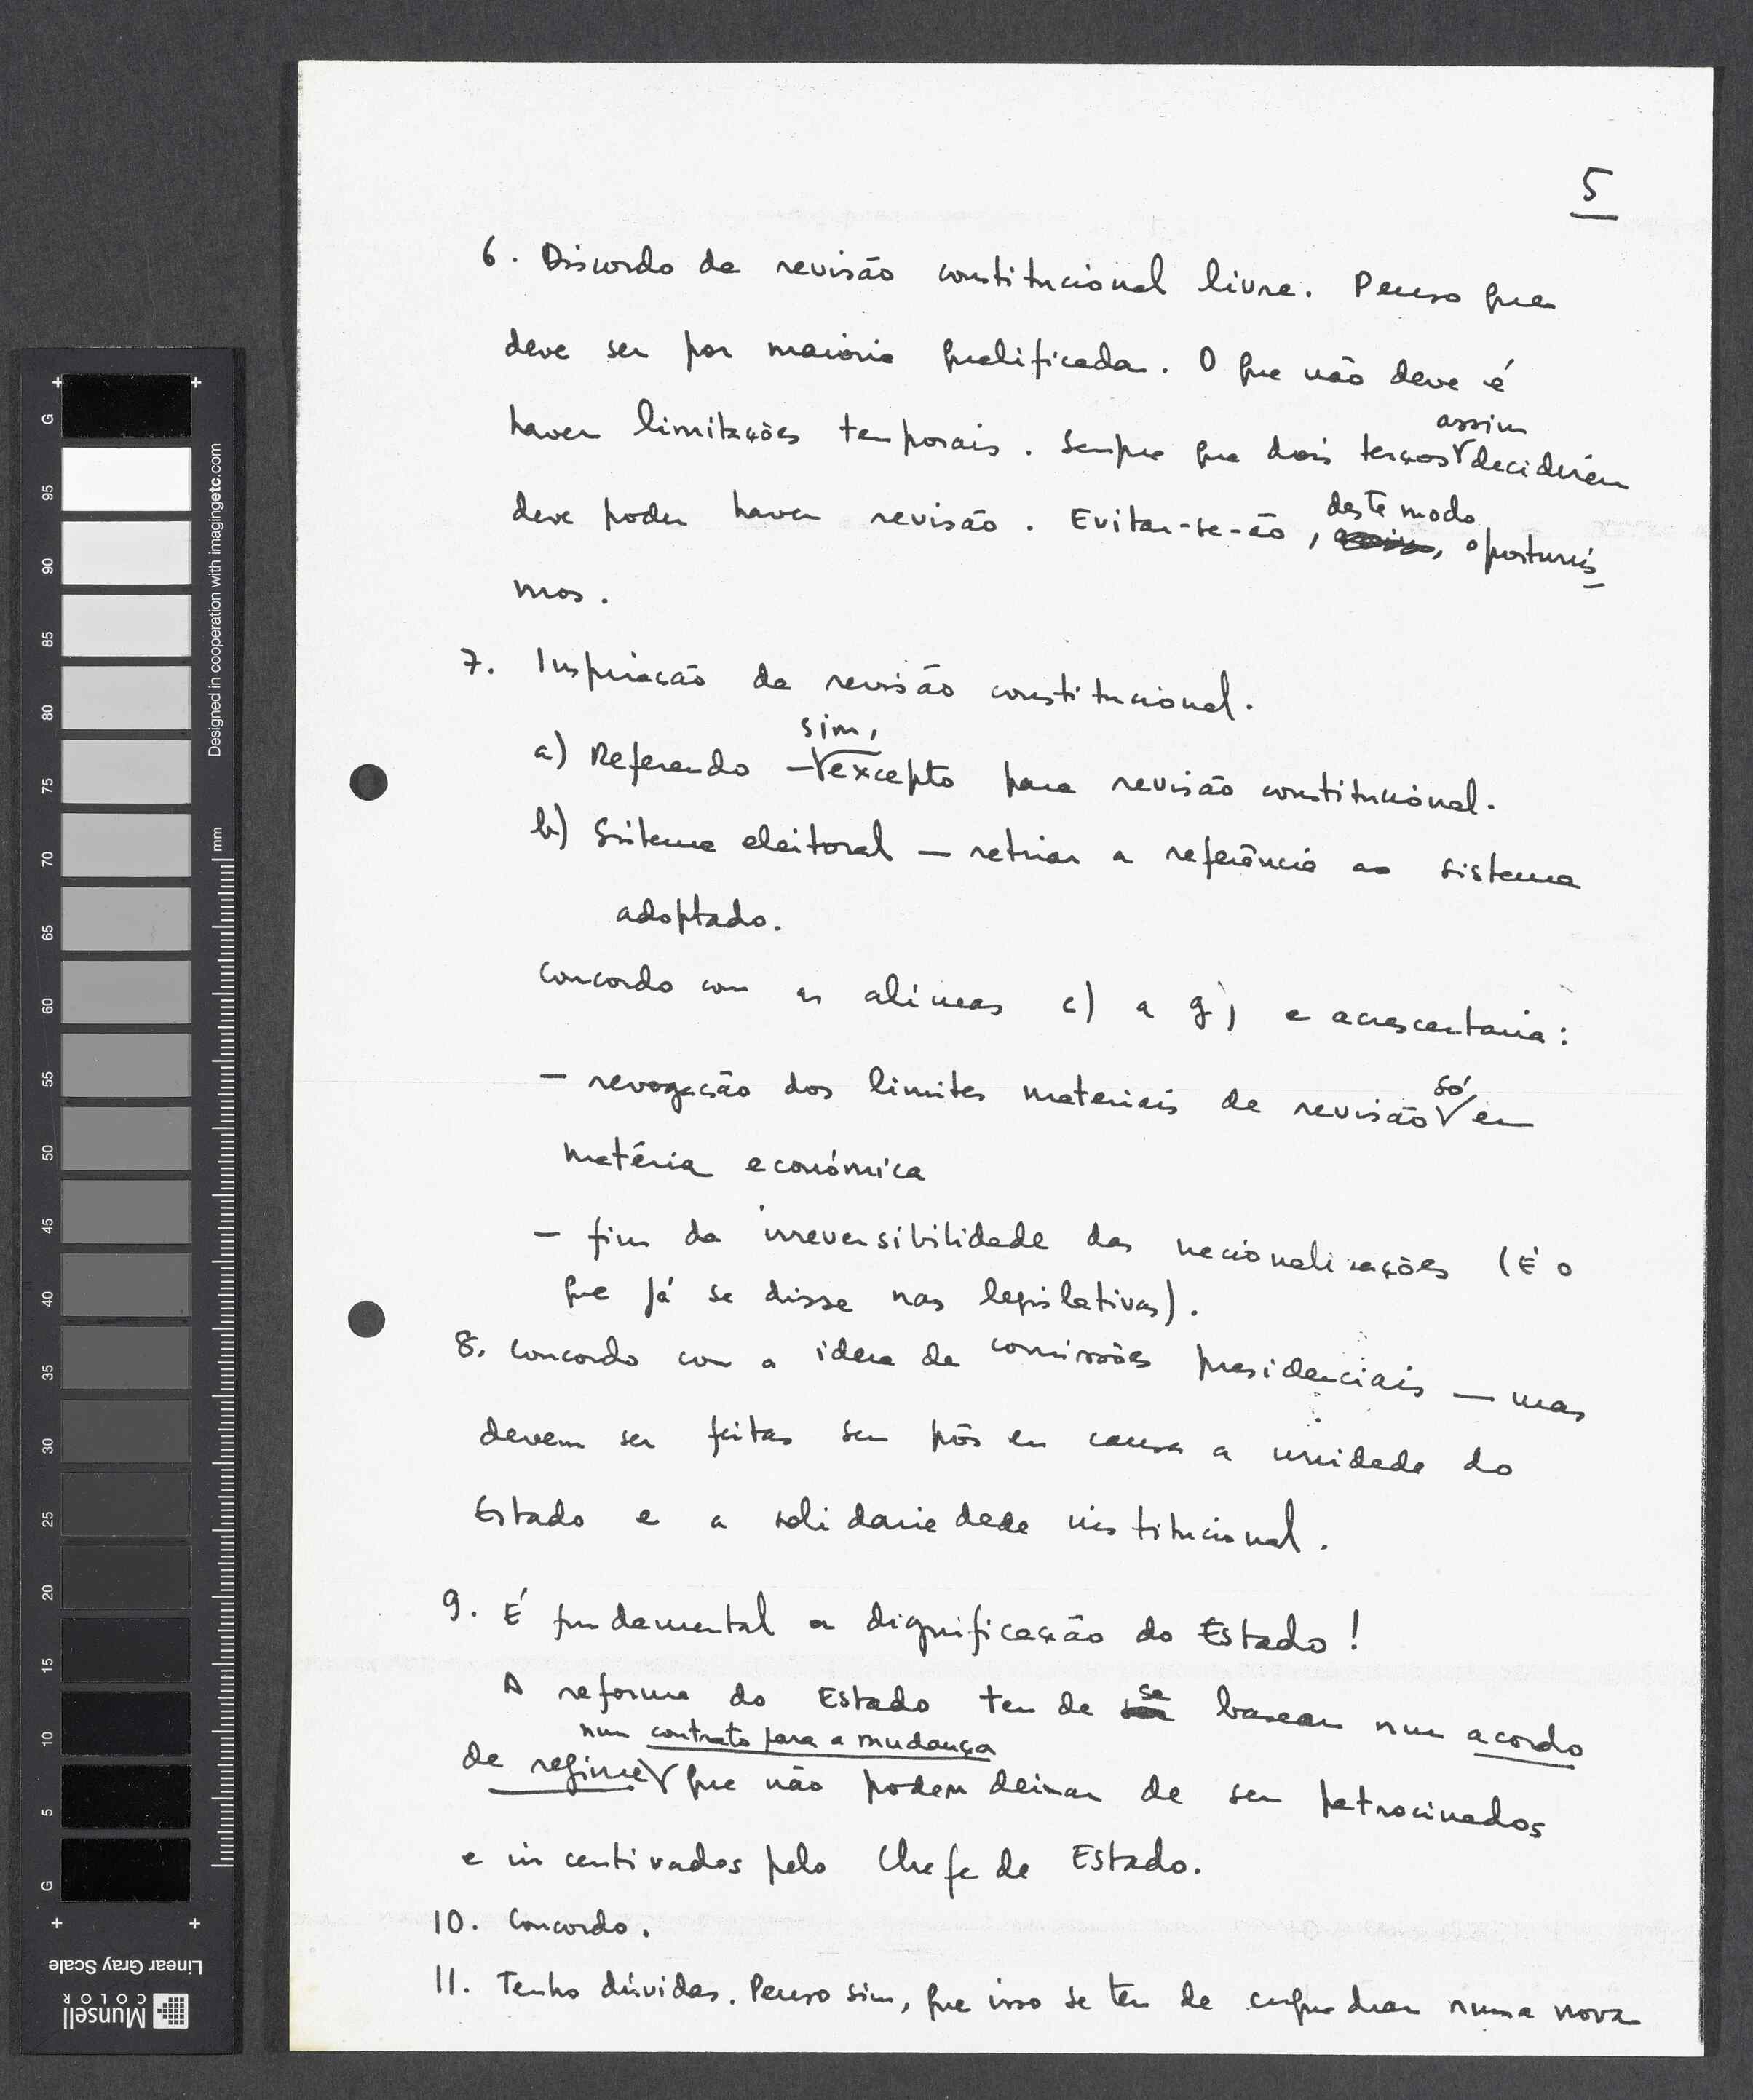 5
6. Discordo da revisão constitucional livre. Penso que
deve ser por maioria qualificada. O que não deve é
assim
haver limitações temporais. Sempre que dois terços decidirem
deste modo
deve poder haver revisão. Evitar-se-ão, assim, oportunis-
mos.
7. Inspiração da revisão constitucional.
sim,
a) Referendo — excepto para revisão constitucional.
b) Sistema eleitoral — retirar a referência ao sistema
adoptado.
Concordo com as alíneas c) a g) e acrescentaria:
só
— revogação dos limites materiais de revisão em
matéria económica
— fim da irreversibilidade das nacionalizações (É o
que já se disse nas legislativas).
8. Concordo com a ideia de comissões presidenciais — mas
devem ser feitas sem pôr em causa a unidade do
Estado e a solidariedade institucional.
9. É fundamental a dignificação do Estado!
se
A reforma do Estado tem de basear num acordo
num contrato para a mudança
de regime que não podem deixar de ser patrocinados
e incentivados pelo Chefe de Estado.
10. Concordo.
11. Tenho dúvidas. Penso sim, que isso se tem de enquadrar numa nova
G
95
90
85
80
75
70
65
60
55
50
45
40
35
30
25
20
15
10
5
G
mm
Designed in cooperation with imagingetc.com
Linear Gray Scale
Munsell
COLOR